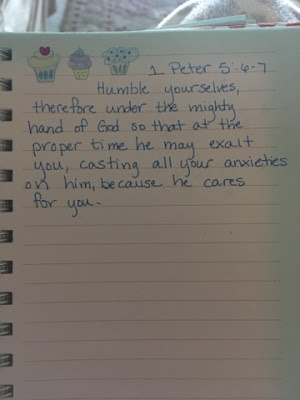 1 Peter 5:6-7
Humble yourselves,
therefore under the mighty
hand of God so that at the
proper time he may exalt
you, casting all your anxieties
on him, because he cares
for you.